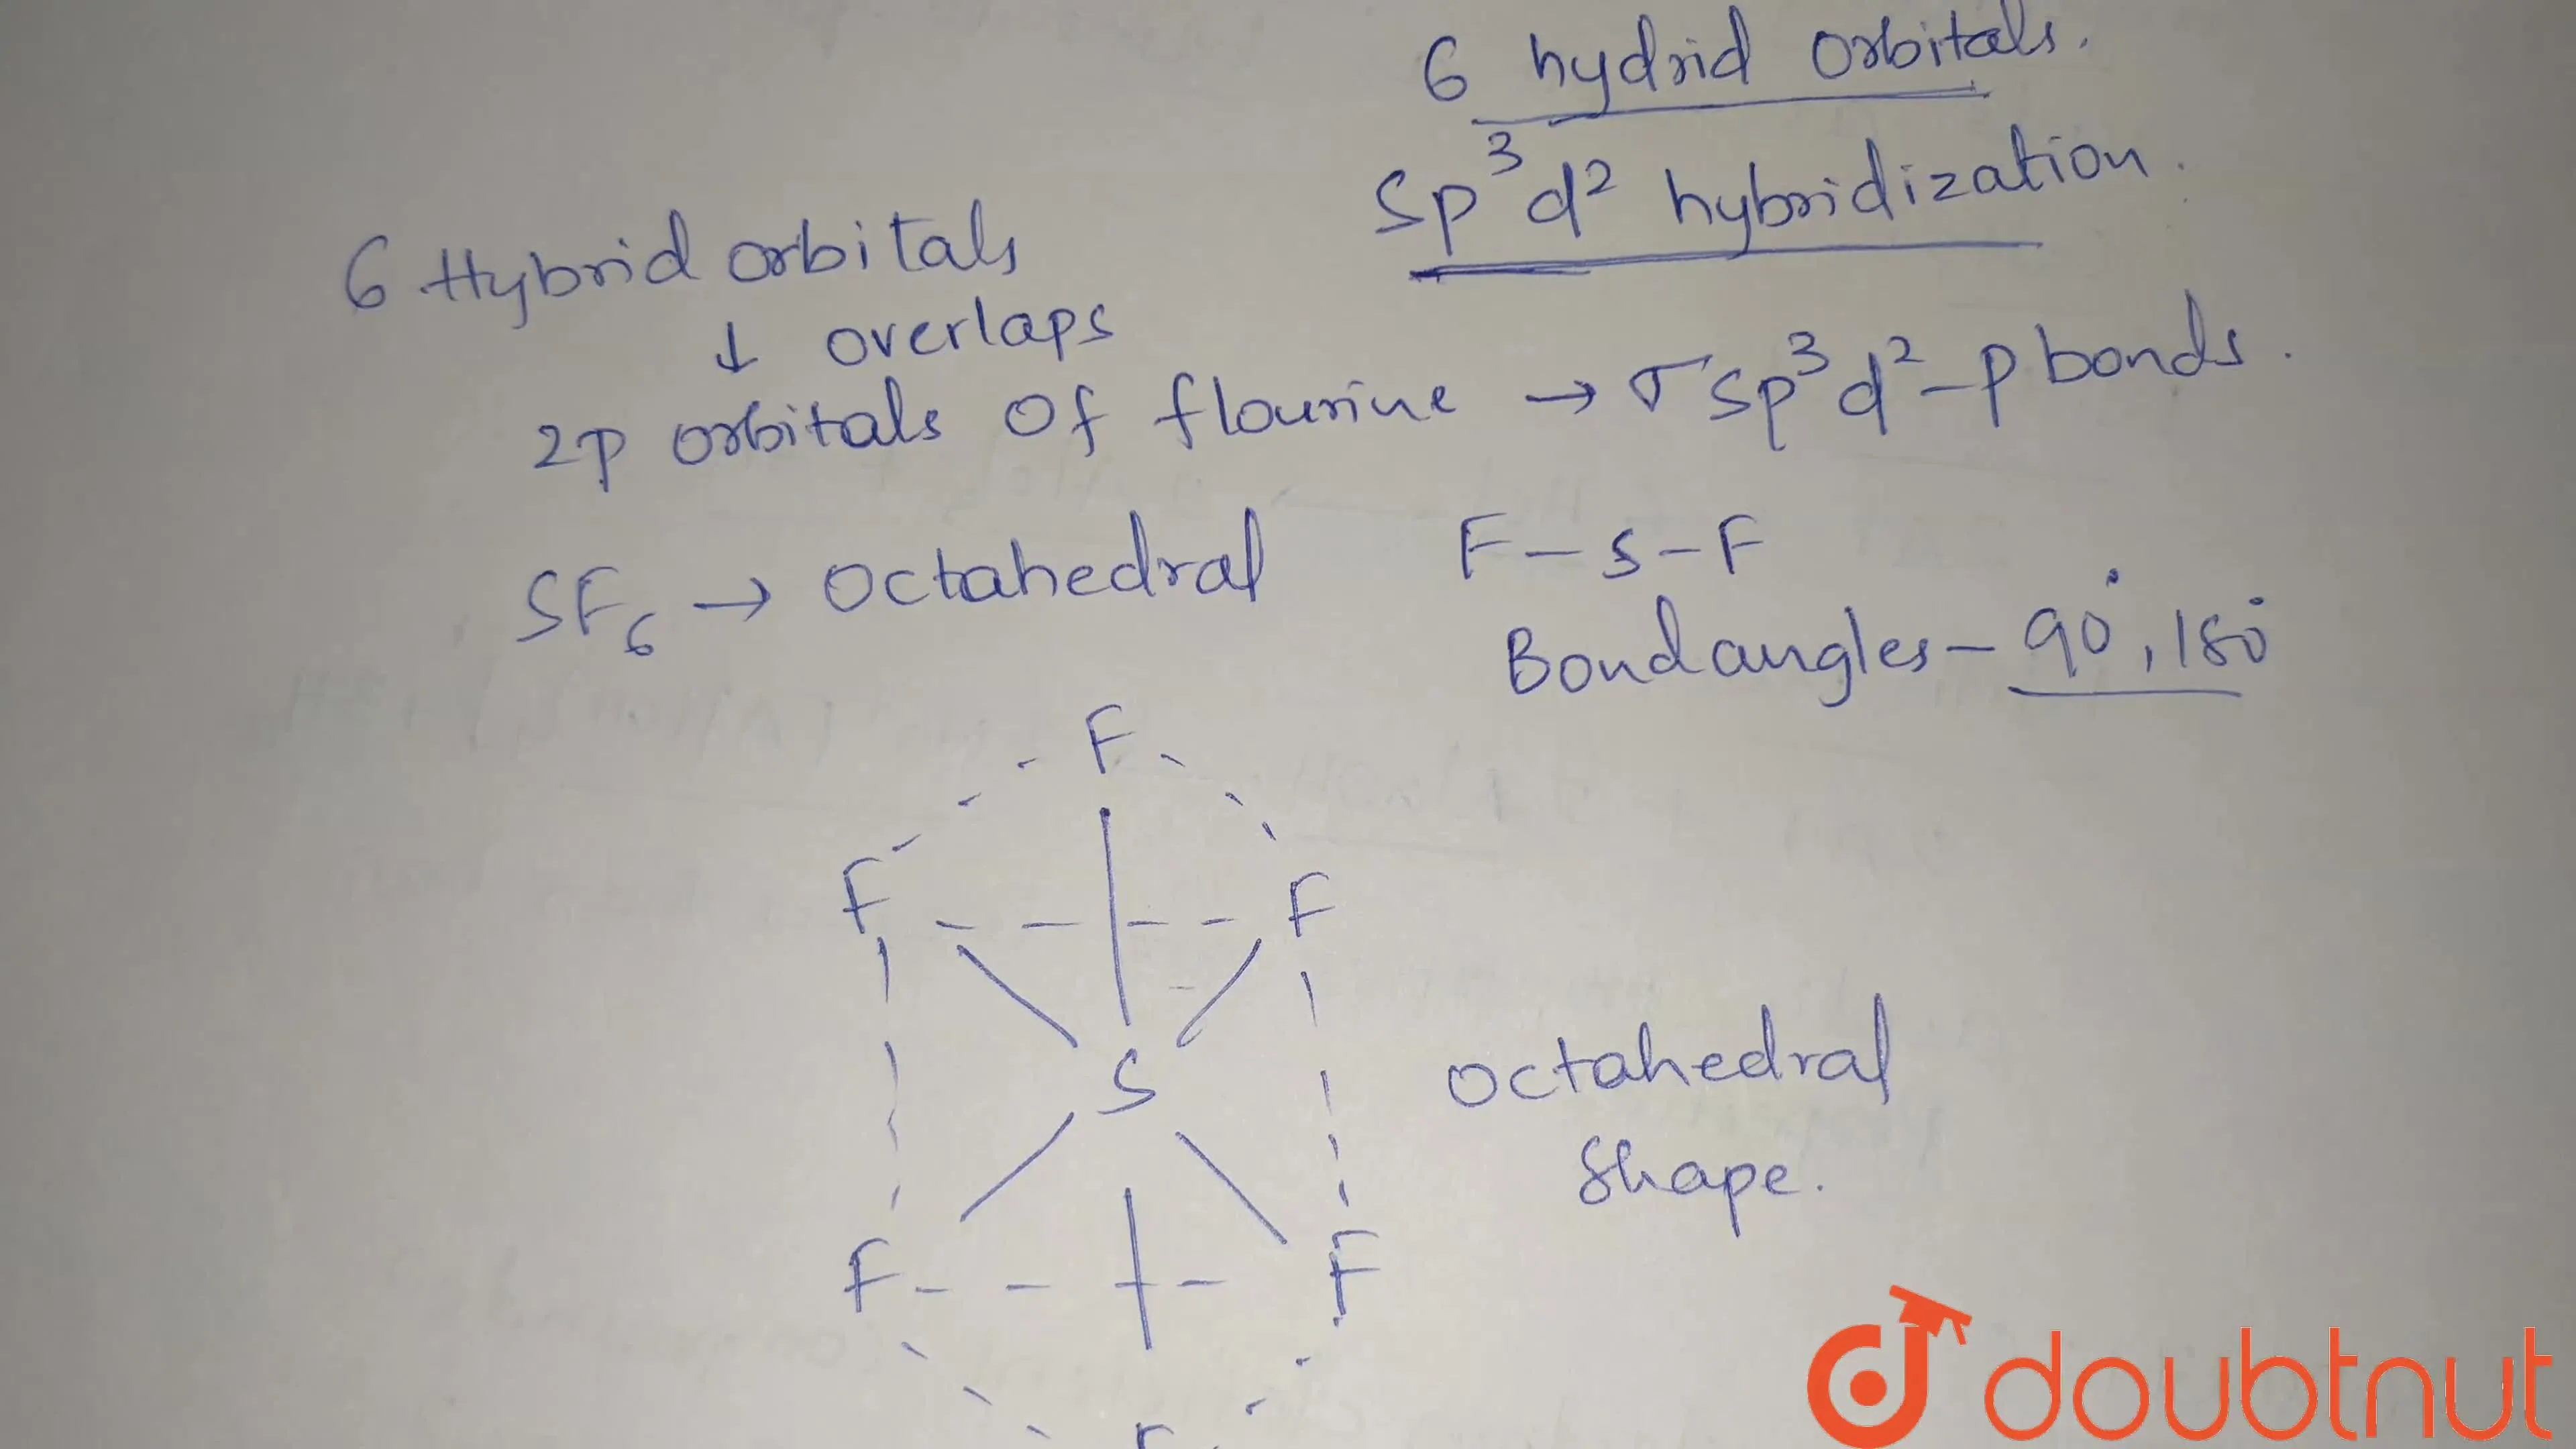 6 hydrid orbitals.
Sp³d² hybridization.
6 Hybrid orbitals
↓ overlaps
2p orbitals of flourine → σ sp³d²-p bonds.
SF₆ → Octahedral
F-S-F
Bond angles - 90°, 180°
F
F F
S
Octahedral
shape.
F F
doubtnut